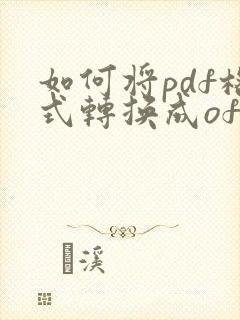 如何将pdf格
式轉換成of
溪